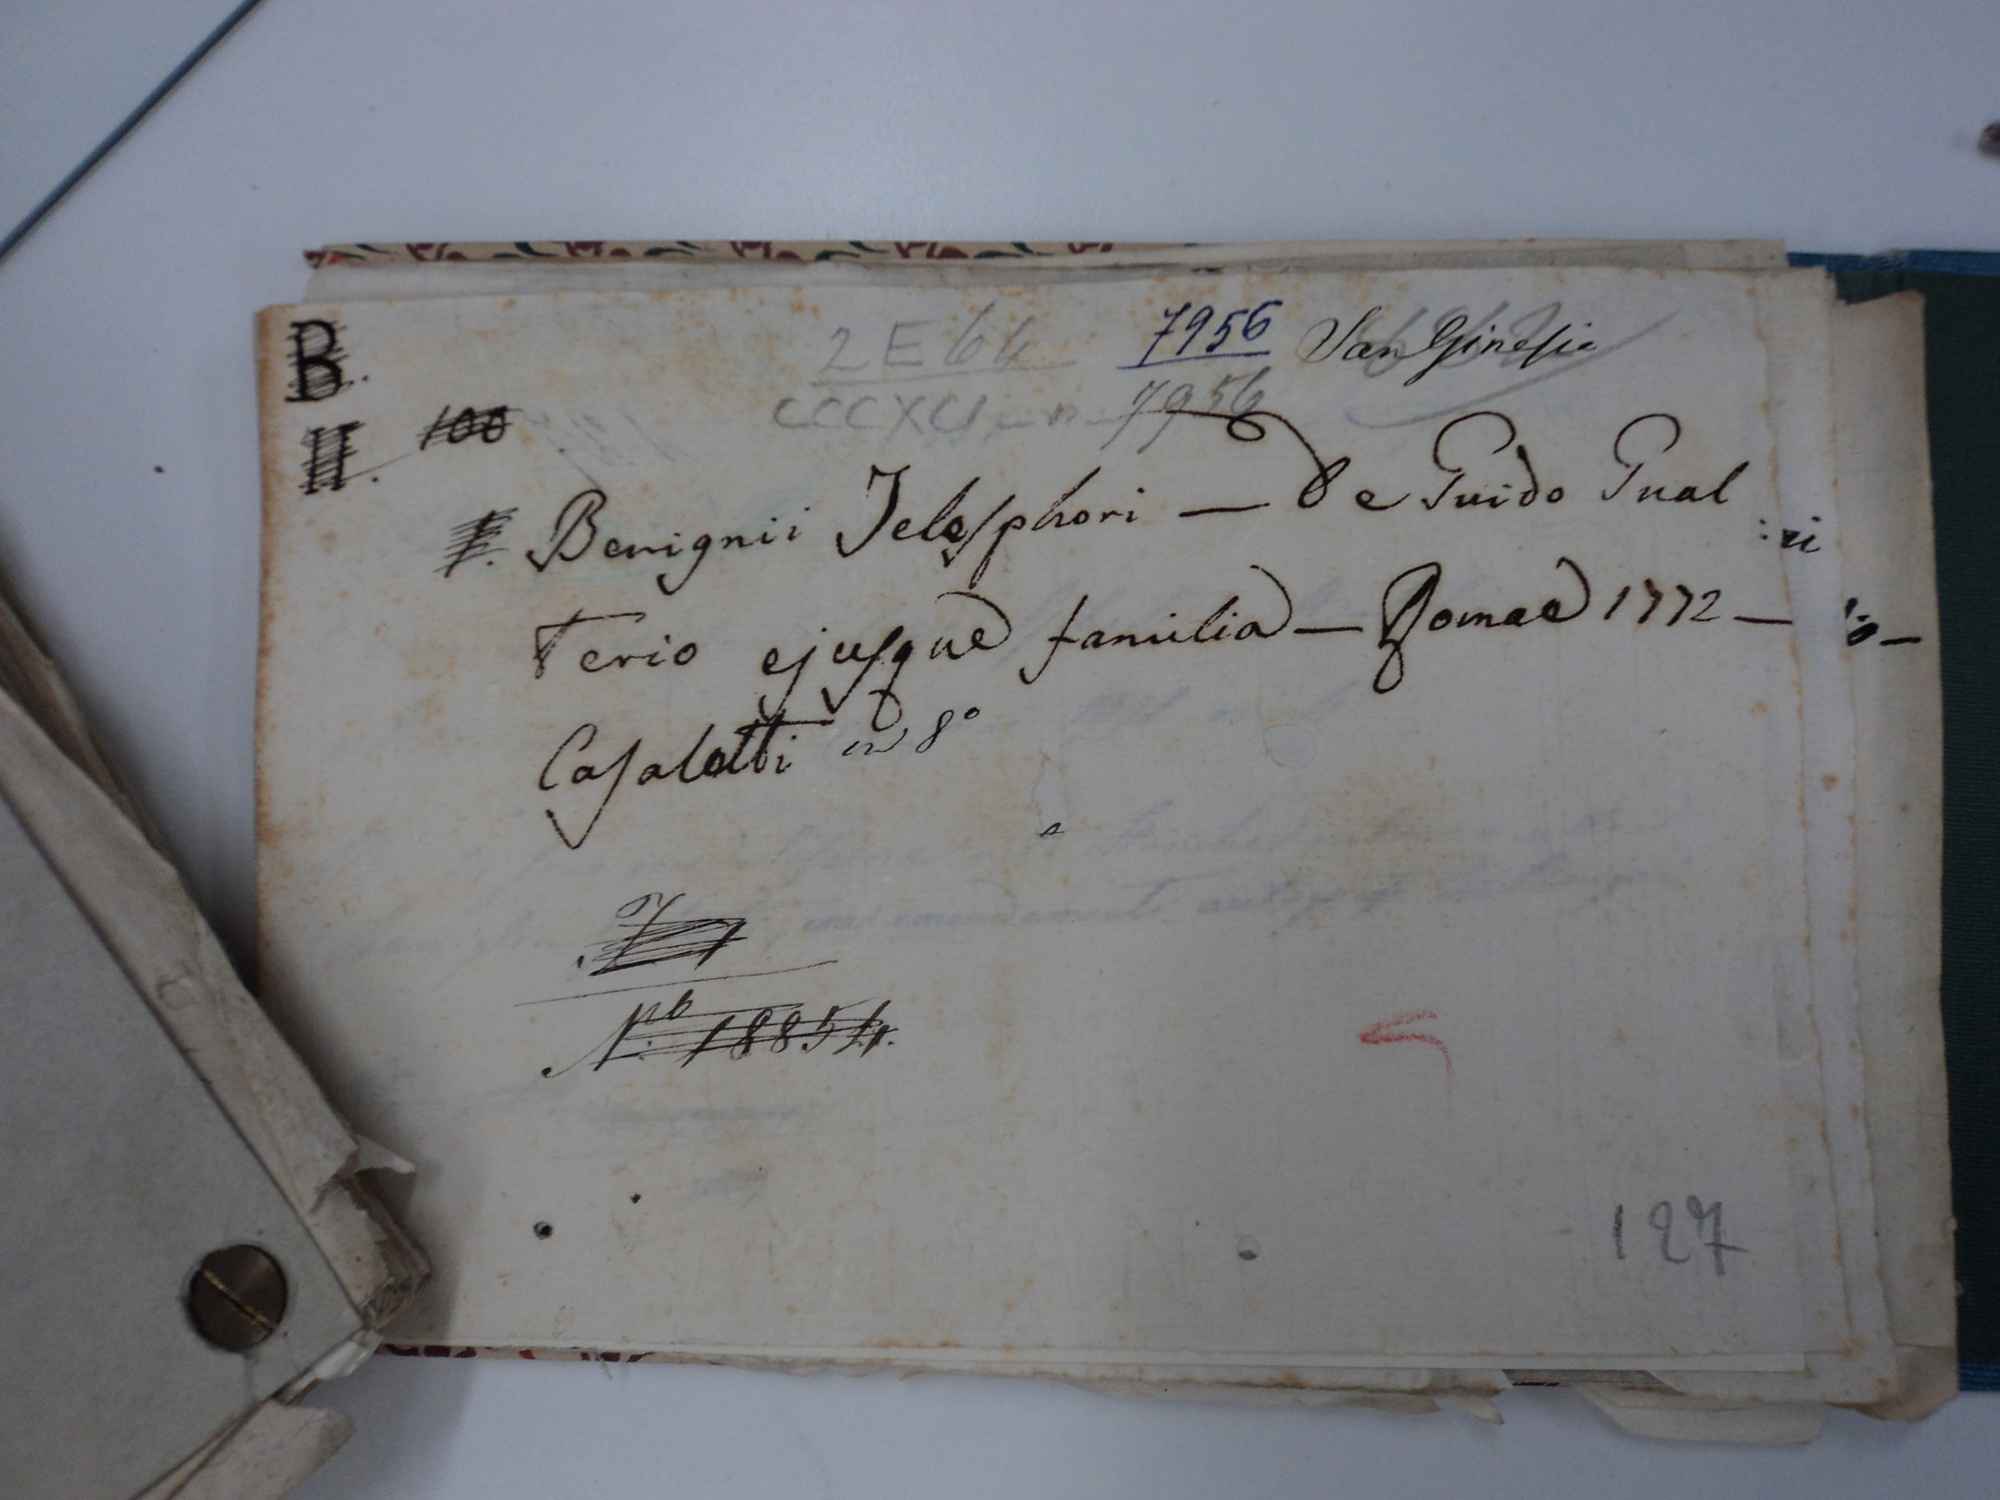 B. 2 E 64 7956 San Ginesio
II. 100 CCCXCI 7956
Benignii Telesphori — De Guido Gual
:ri
terio ejusque familia — Romae 1772 —
Casaletti in 8°
No. 18854.
127